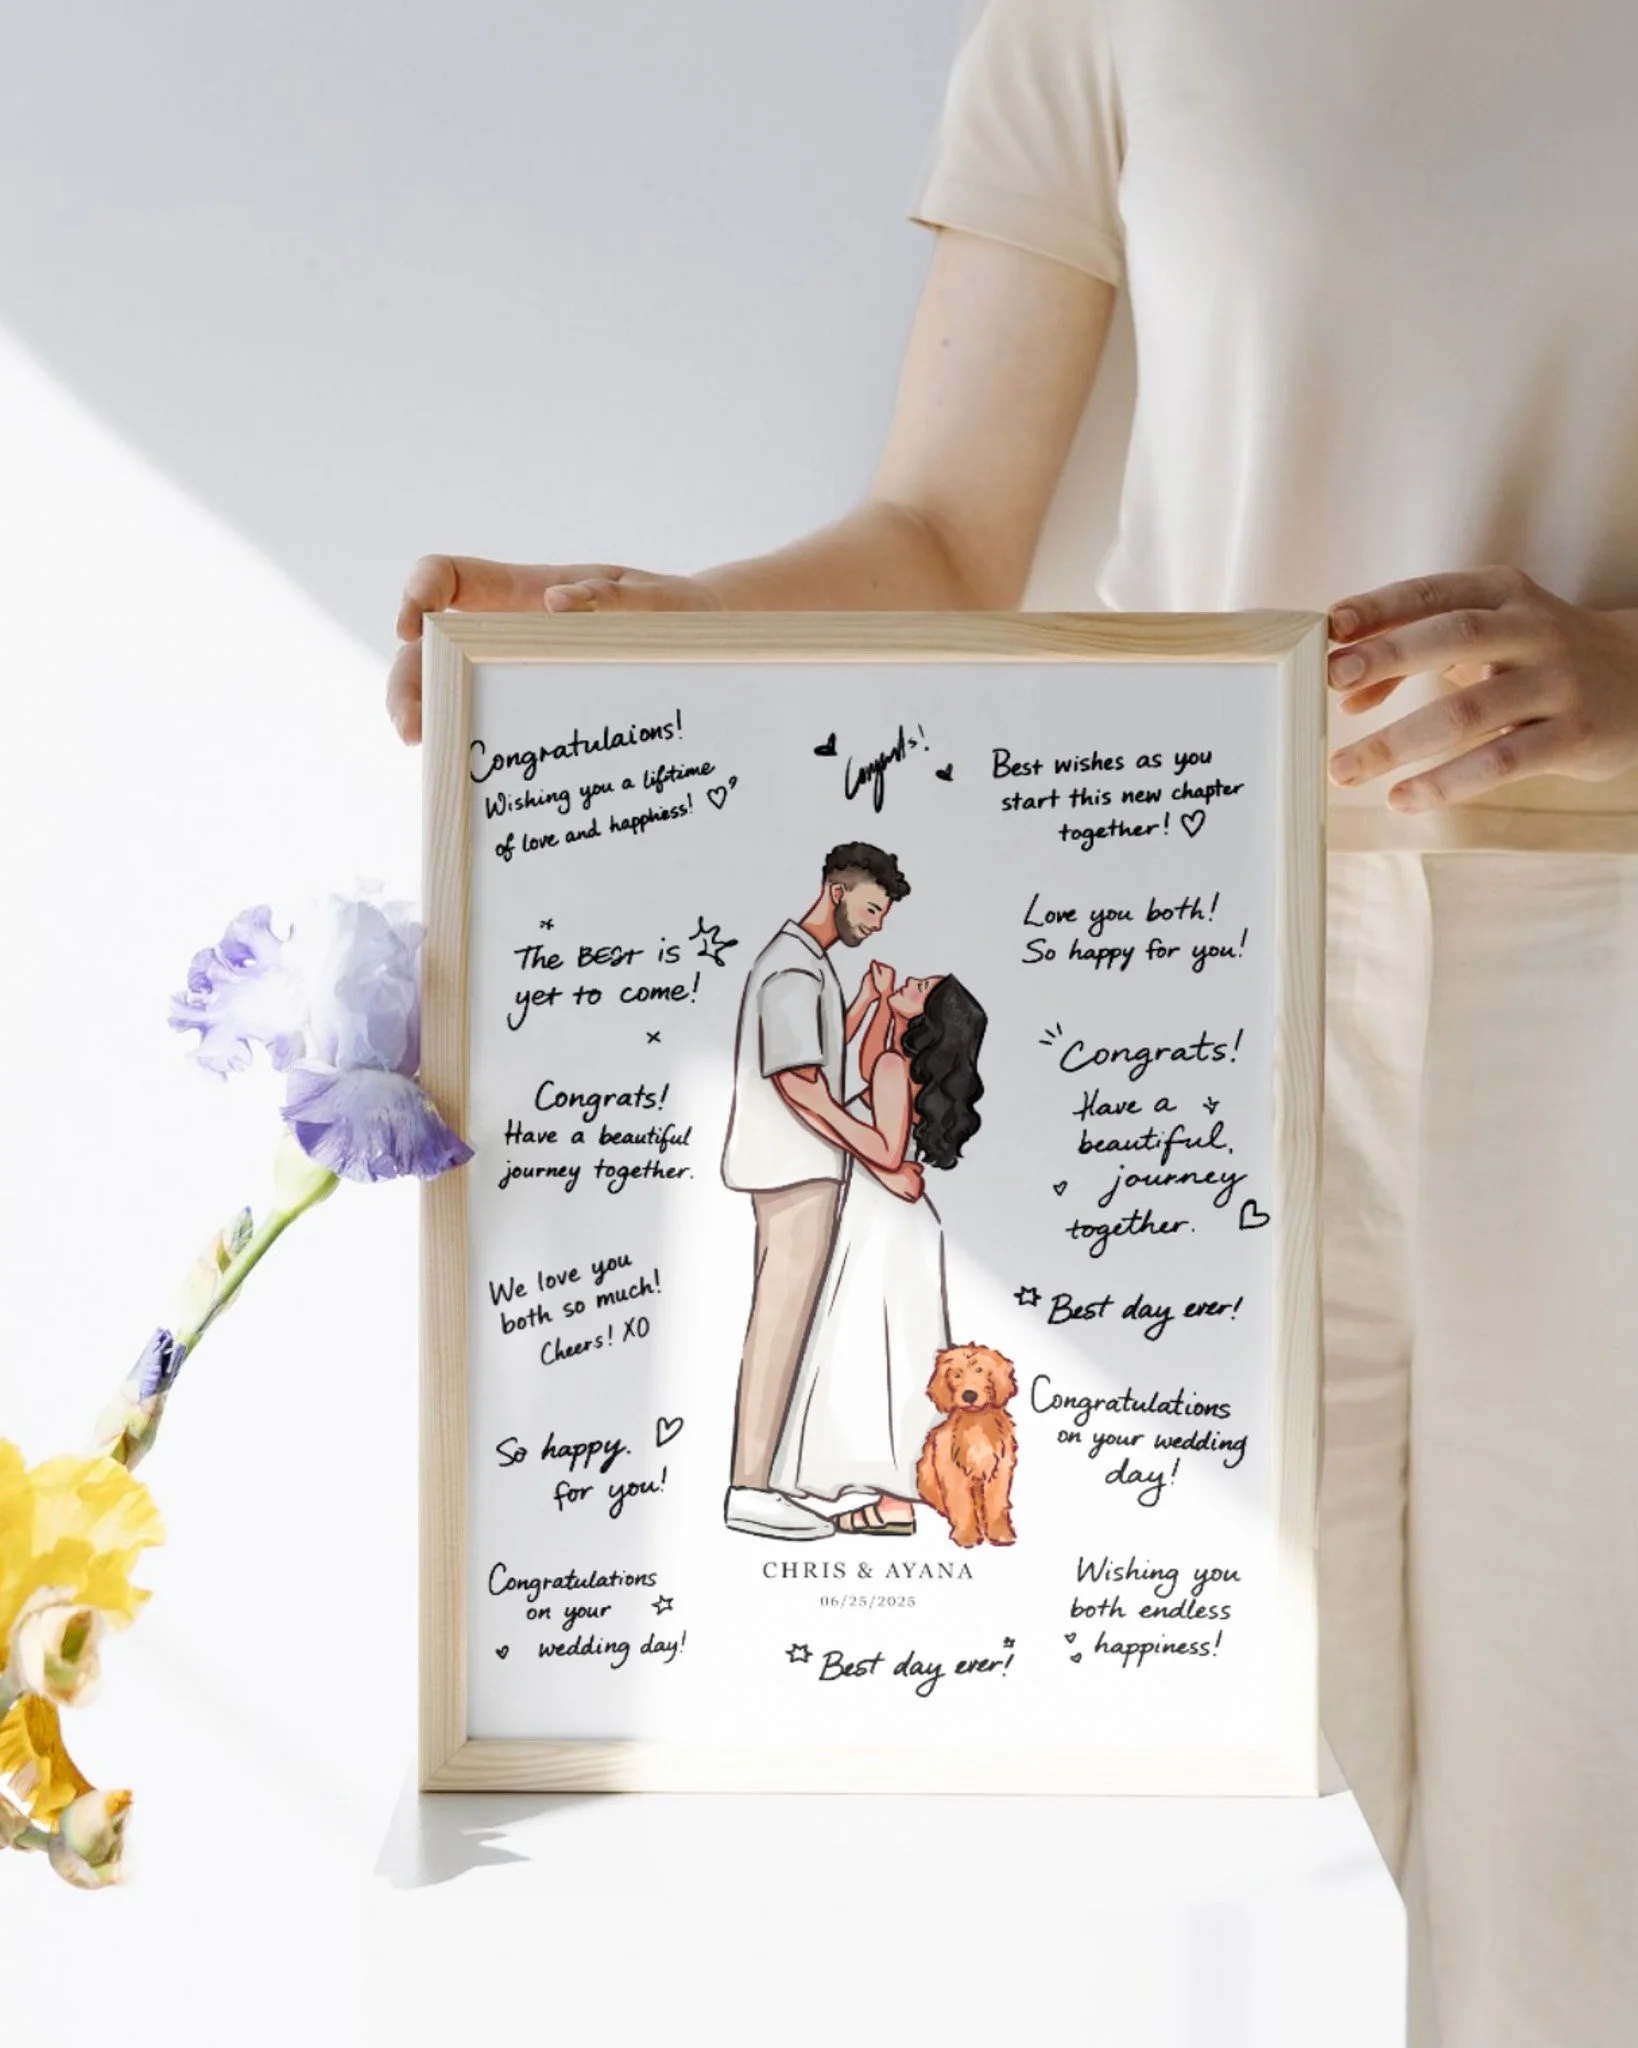 Congratulaions!
Wishing you a lifetime
of love and happiness!
Congrats!
Best wishes as you
start this new chapter
together!
The BEST is
yet to come!
Love you both!
So happy for you!
Congrats!
Have a beautiful
journey together.
Congrats!
Have a
beautiful.
journey
together.
We love you
both so much!
Cheers! XO
Best day ever!
So happy.
for you!
Congratulations
on your wedding
day!
Congratulations
on your
wedding day!
CHRIS & AYANA
06/25/2025
Best day ever!
Wishing you
both endless
happiness!